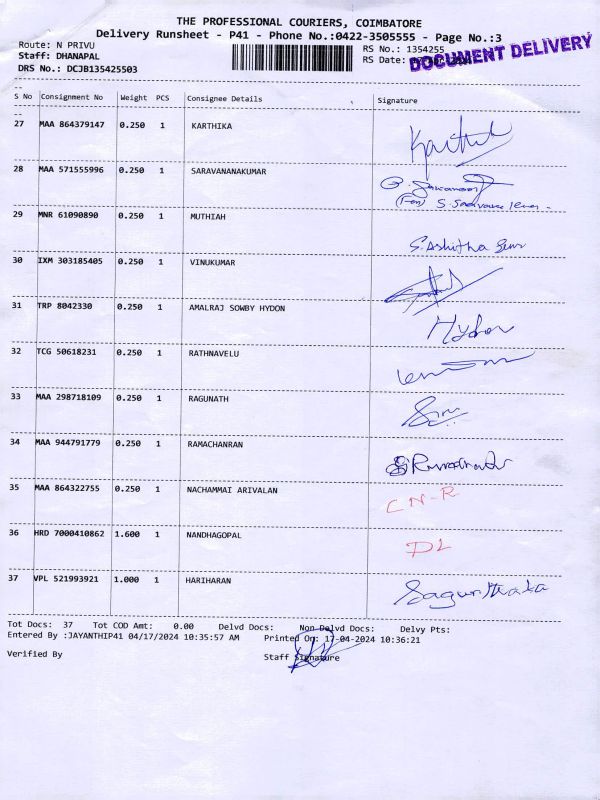 THE PROFESSIONAL COURIERS, COIMBATORE
Delivery Runsheet - P41 - Phone No.:0422-3505555 - Page No.:3
Route: N PRIVU RS No.: 1354255
Staff: DHANAPAL RS Date:
DOCUMENT DELIVERY
DRS No.: DCJB135425503
S No Consignment No Weight PCS Consignee Details Signature
27 MAA 864379147 0.250 1 KARTHIKA
28 MAA 571555996 0.250 1 SARAVANANAKUMAR
(For) S.
29 MNR 61090890 0.250 1 MUTHIAH
S. Ashitha
30 IXM 303185405 0.250 1 VINUKUMAR
31 TRP 8042330 0.250 1 AMALRAJ SOWBY HYDON
Hydon
32 TCG 50618231 0.250 1 RATHNAVELU
33 MAA 298718109 0.250 1 RAGUNATH
34 MAA 944791779 0.250 1 RAMACHANRAN
35 MAA 864322755 0.250 1 NACHAMMAI ARIVALAN CN-R
36 HRD 7000410862 1.600 1 NANDHAGOPAL DL
37 VPL 521993921 1.000 1 HARIHARAN
Tot Docs: 37 Tot COD Amt: 0.00 Delvd Docs: Non Delvd Docs: Delvy Pts:
Entered By :JAYANTHIP41 04/17/2024 10:35:57 AM Printed On: 17-04-2024 10:36:21
Verified By Staff Signature